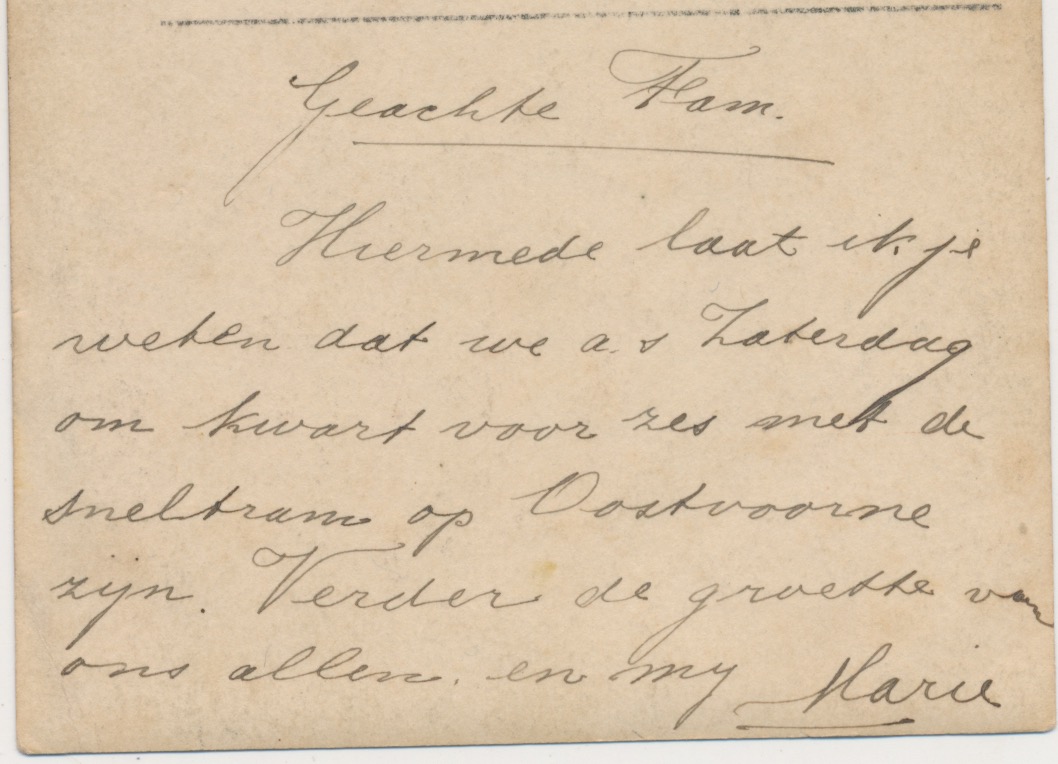 Geachte Fam.
Hiermede laat ik je
weten dat we a.s Zaterdag
om kwart voor zes met de
sneltram op Oostvoorne
zijn. Verder de groette van
ons allen. en my Marie